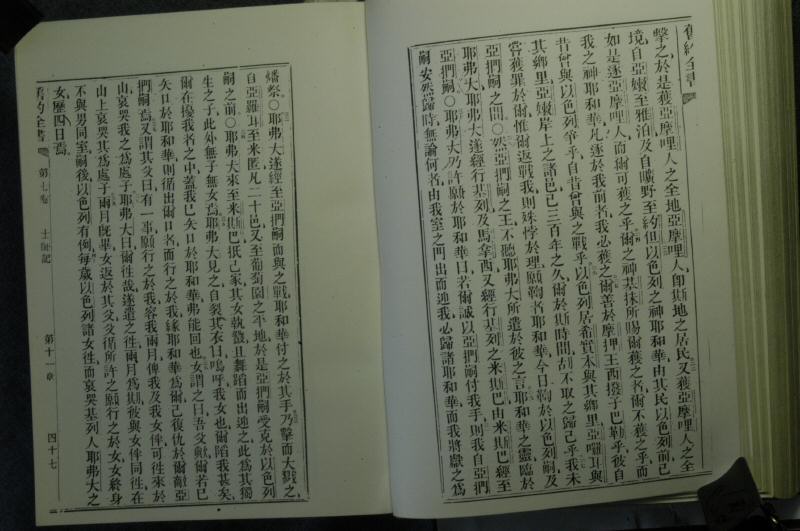 舊約全書
擊之於是獲亞摩哩人之全地亞摩哩人卽斯地之居民又獲亞摩哩人之全
境自亞嫩至雅泊及自曠野至約但以色列之神耶和華由其民以色列前已
如是逐亞摩哩人而爾可獲之乎爾之神基抹所賜爾獲之者爾不獲之乎而
我之神耶和華凡逐於我前者我必獲之爾善於摩押王西撥子巴勒乎彼自
昔曾與以色列爭乎自昔曾與之戰乎以色列居希實本與其鄉里亞囉耳與
其鄉里亞嫩岸上之諸邑已三百年之久爾於斯時間胡不取之歸己乎我未
嘗獲罪於爾惟爾返戰我則殊悖於理願鞫者耶和華今日鞫於以色列嗣及
亞捫嗣之間○然亞捫嗣之王不聽耶弗大所遣於彼之言耶和華之靈臨於
耶弗大耶弗大遂經行基列及馬拿西又經行基列之米斯巴由米斯巴經至
亞捫嗣○耶弗大乃許願於耶和華曰若爾誠以亞捫嗣付我手則我自亞捫
嗣安然歸時無論何者由我室之門出而迎我必歸諸耶和華而我將獻之爲
燔祭。○耶弗大遂經至亞捫嗣而與之戰耶和華付之於其手乃擊而大戮之、
自亞囉耳至米匿凡二十邑又至葡萄園之平地於是亞捫嗣受克於以色列
嗣之前○耶弗大來至米斯巴抵己家其女執鼗且舞蹈而出迎之此爲其獨
生之子此外無子無女焉耶弗大見之自裂其衣曰嗚呼我女也爾陷我甚矣、
爾在擾我者之中蓋我已矢口於耶和華弗能回也女謂之曰吾父歟爾若已
矢口於耶和華則循出爾口者而行之於我緣耶和華爲爾已復仇於爾敵亞
捫嗣焉又謂其父曰有一事願行之於我容我兩月俾我及我女伴可往來於
山哀哭我之爲處子耶弗大曰爾往哉遂遣之往兩月焉彼與女伴同往在
山上哀哭其爲處子兩月旣畢女返於其父父循所許之願行之於女女終身
不與男同室嗣後以色列有例每歲以色列諸女往而哀哭基列人耶弗大之
女歷四日焉
舊約全書 第七卷 士師記 第十一章 四十七